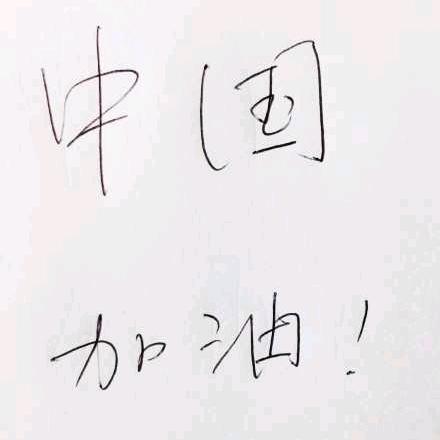 中国
加油!